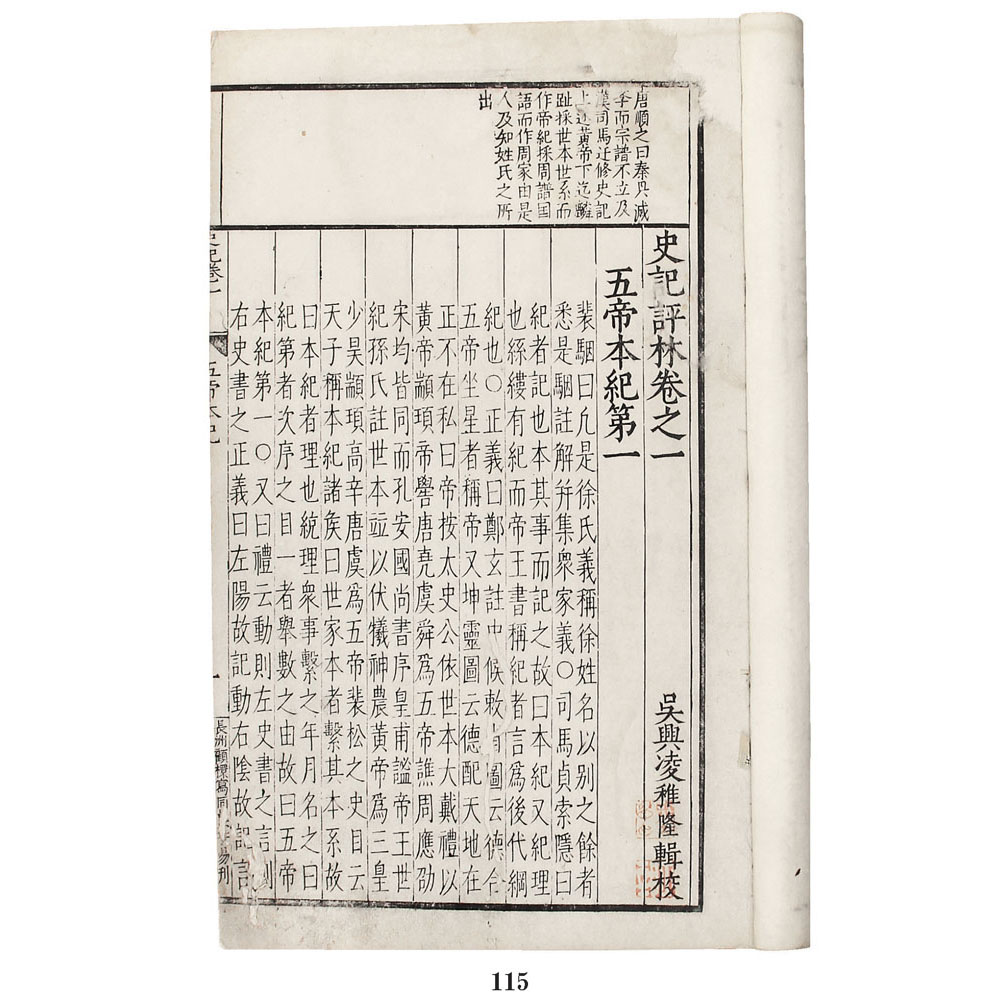 唐順之曰秦兵滅
季而宗譜不立及
漢司馬迁修史記
上述黄帝下迄麟
趾採世本世系而
作帝紀採周譜国
語而作周家由是
人及知姓氏之所
出
史記評林卷之一
吳興凌稚隆輯校
五帝本紀第一
裴駰曰凡是徐氏義稱徐姓名以别之餘者
悉是駰註解幷集衆家義〇司馬貞索隱曰
紀者記也本其事而記之故曰本紀又紀理
也絲縷有紀而帝王書稱紀者言爲後代綱
紀也〇正義曰鄭玄註中候敕省圖云德合
五帝坐星者稱帝又坤靈圖云德配天地在
正不在私曰帝按太史公依世本大戴禮以
黄帝顓頊帝嚳唐堯虞舜爲五帝譙周應劭
宋均皆同而孔安國尚書序皇甫謐帝王世
紀孫氏註世本並以伏犧神農黄帝爲三皇
少昊顓頊高辛唐虞爲五帝裴松之史目云
天子稱本紀諸矦曰世家本者繫其本系故
曰本紀者理也統理衆事繫之年月名之曰
紀第者次序之目一者舉數之由故曰五帝
本紀第一〇又曰禮云動則左史書之言則
右史書之正義曰左陽故記動右陰故記言
史記卷一
五帝本紀
一
長洲顧檈寫
刊
115